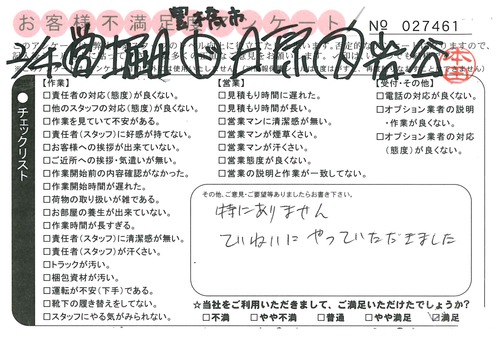 お客様不満足度アンケート
豊橋市
No 027461
【作業】
□責任者の対応(態度)が良くない。
□他のスタッフの対応(態度)が良くない。
□作業を見ていて安心がある。
□責任者(スタッフ)に好感が持てない。
□お客様への挨拶が出来ていない。
□ご近所への挨拶・気遣いが無い。
□作業開始前の内容確認がなかった。
□作業開始時間が遅れた。
□荷物の取り扱いが雑である。
□お部屋の養生が出来ていない。
□作業時間が長すぎる。
□責任者(スタッフ)に清潔感が無い。
□責任者(スタッフ)が汗くさい。
□トラックが汚い。
□梱包資材が汚い。
□運転が不安(下手)である。
□靴下の履き替えをしてない。
□スタッフにやる気がみられない。
【営業】
□見積もり時間に遅れた。
□見積もり時間が長い。
□営業マンに清潔感が無い。
□営業マンが煙草くさい。
□営業マンが汗くさい。
□営業態度が良くない。
□営業の説明と作業が一致してない。
【受付・その他】
□電話の対応が良くない。
□オプション業者の説明
・作業が良くない。
□オプション業者の対応
(態度)が良くない。
●チェックリスト
その他、ご意見・ご要望等ありましたらお書き下さい。
特にありません
ていねいにやっていただきました
☆当社をご利用いただきまして、ご満足いただけたでしょうか?
□不満 □やや不満 □普通 □やや満足 ☑満足